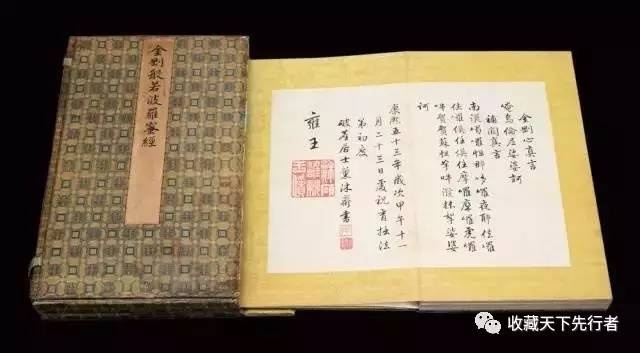 金剛般若波羅蜜經
金剛心真言
唵烏倫尼娑婆訶
補闕真言
南謨喝囉怛那哆囉夜耶佉囉
佉囉俱住俱住摩囉摩囉虎囉
吽賀賀蘇怛拏吽潑抹拏娑婆
訶
康熙五十三年歲次甲午十一
月二十三日慶祝育拙法
第初度
破塵居士薰沐齋書
雍王
收藏天下先行者